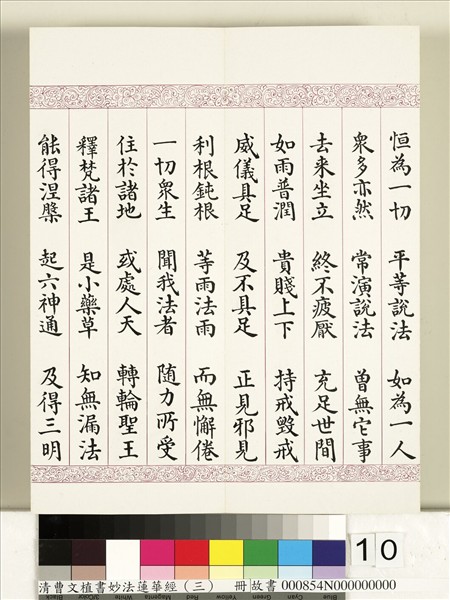 恒為一切　平等說法　如為一人
衆多亦然　常演說法　曾無它事
去来坐立　終不疲厭　充足世間
如雨普潤　貴賤上下　持戒毀戒
威儀具足　及不具足　正見邪見
利根鈍根　等雨法雨　而無懈倦
一切衆生　聞我法者　随力所受
住於諸地　或處人天　轉輪聖王
釋梵諸王　是小藥草　知無漏法
能得涅槃　起六神通　及得三明
10
清曹文植書妙法蓮華經（三）　冊 故書 000854N000000000